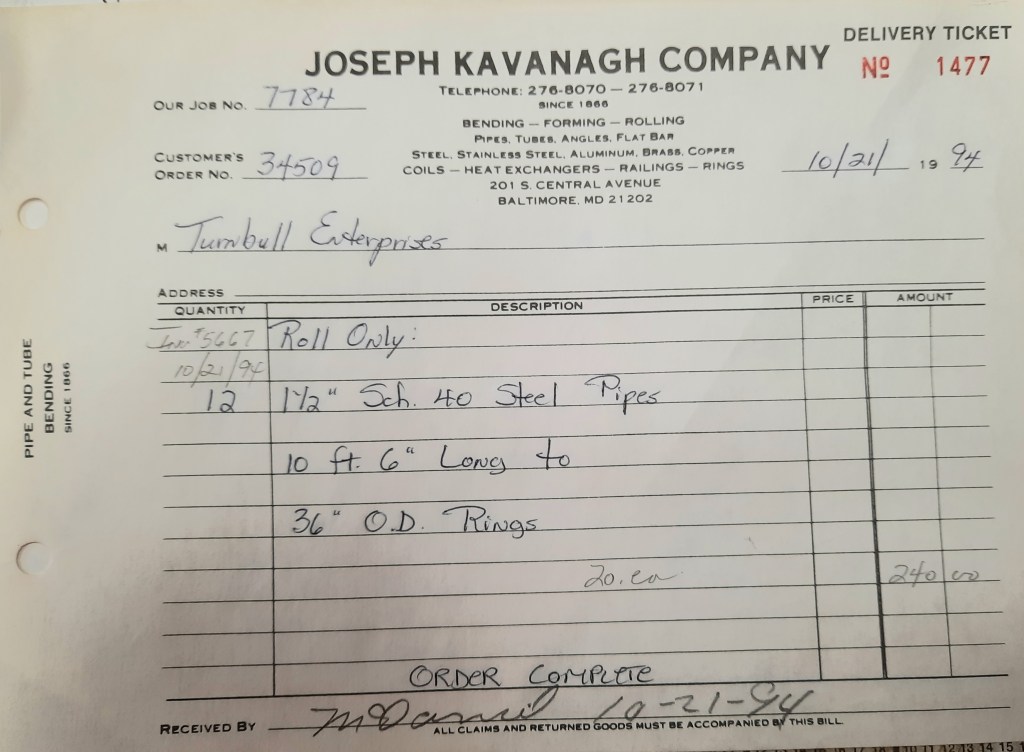 DELIVERY TICKET
JOSEPH KAVANAGH COMPANY
Nº 1477
TELEPHONE: 276-8070 — 276-8071
SINCE 1866
OUR JOB NO. 7784
BENDING — FORMING — ROLLING
PIPES, TUBES, ANGLES, FLAT BAR
STEEL, STAINLESS STEEL, ALUMINUM, BRASS, COPPER
CUSTOMER'S
ORDER NO. 34509
COILS — HEAT EXCHANGERS — RAILINGS — RINGS
10/21/ 19 94
201 S. CENTRAL AVENUE
BALTIMORE, MD 21202
M Turnbull Enterprises
ADDRESS
QUANTITY DESCRIPTION PRICE AMOUNT
Inv. #5667 Roll Only:
10/21/94
12 1½" Sch. 40 Steel Pipes
10 ft. 6" Long to
36" O.D. Rings
20. ea 240 00
ORDER COMPLETE
RECEIVED BY McDaniel 10-21-94
ALL CLAIMS AND RETURNED GOODS MUST BE ACCOMPANIED BY THIS BILL
PIPE AND TUBE
BENDING
SINCE 1866